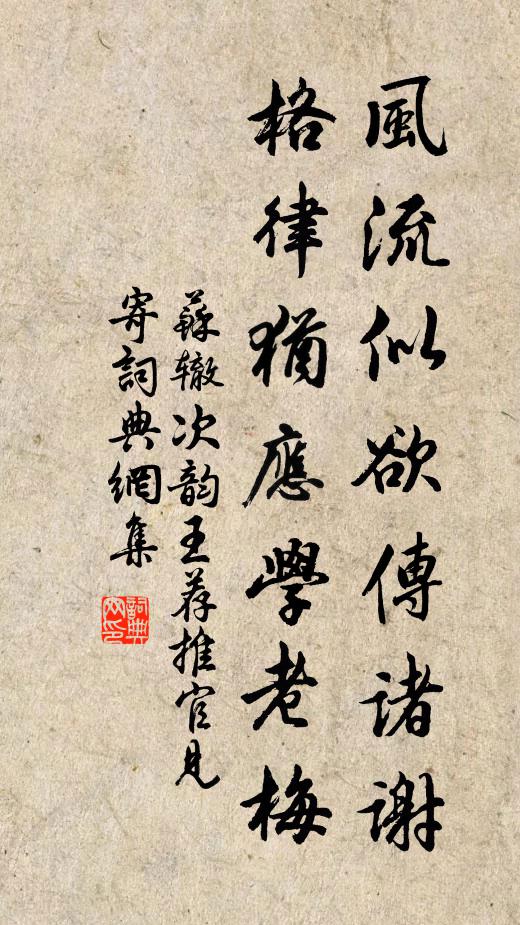 風流似欲傳諸謝
格律猶應學老梅
蘇辙次韵王荐推官見
寄詞典網集
詞典网印